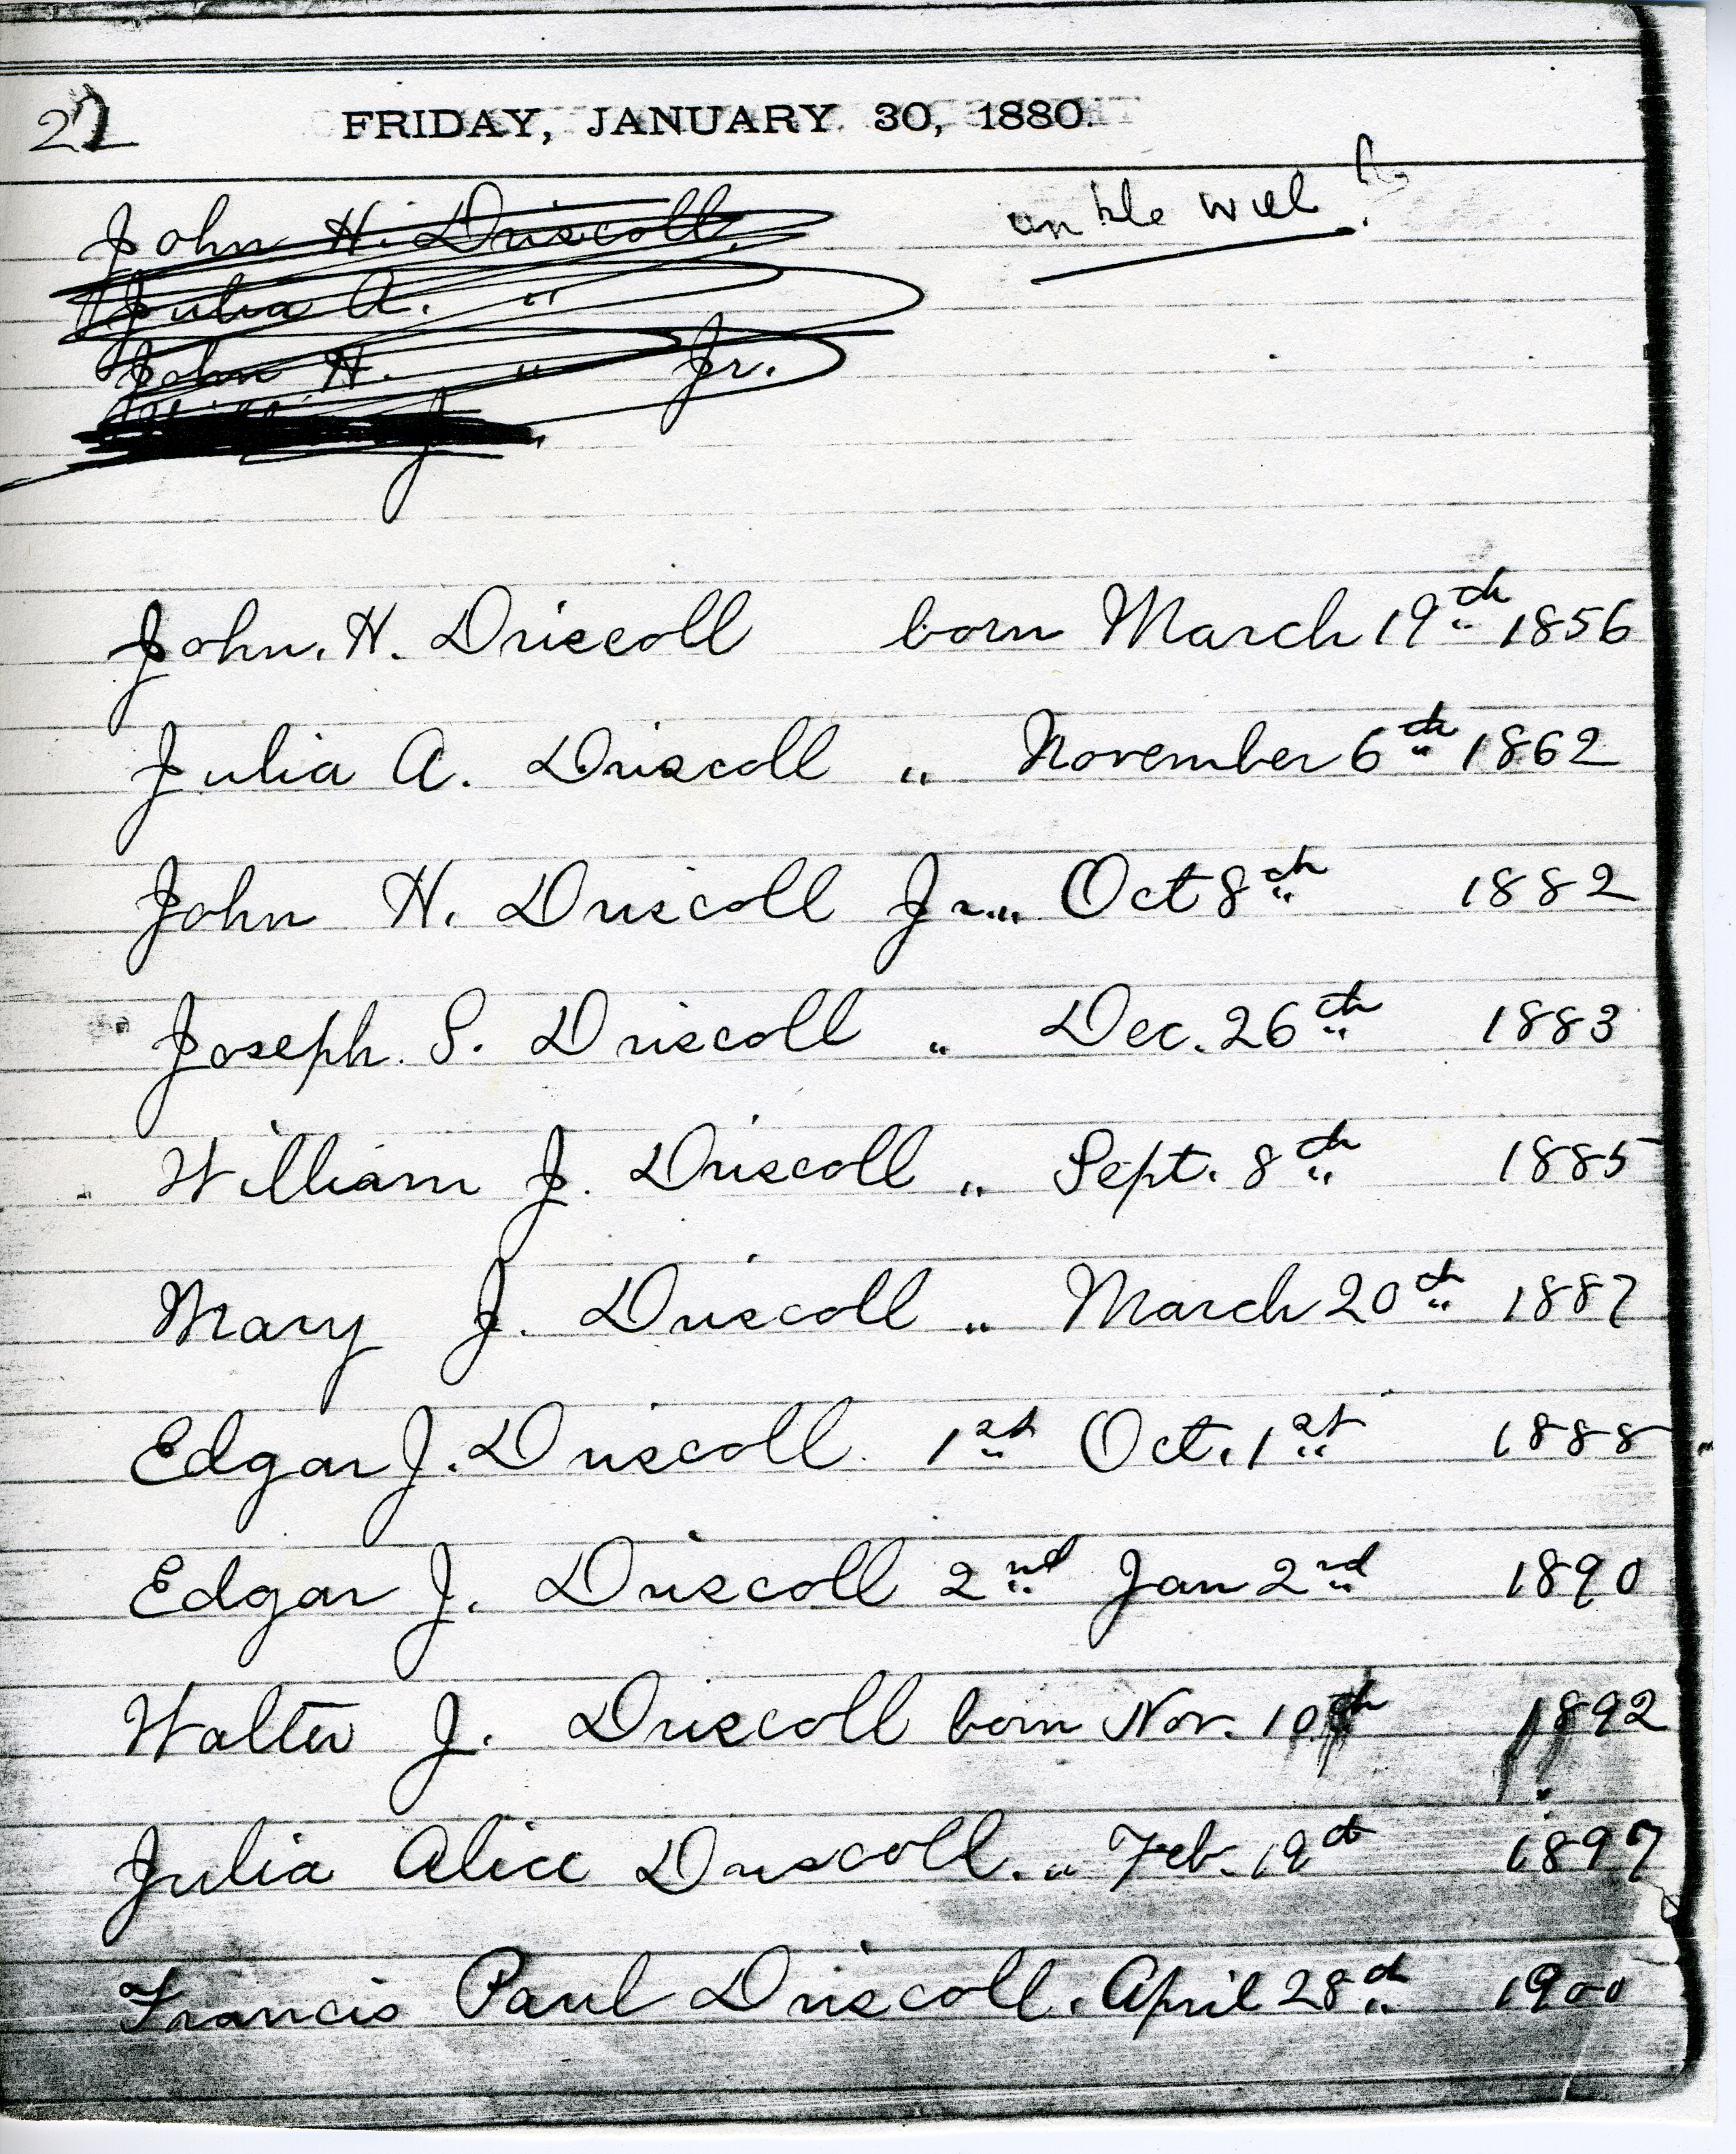 22
FRIDAY, JANUARY 30, 1880.
unkle will
John H. Driscoll
Julia A. "
John H. " Jr.
J.
John. H. Driscoll born March 19th 1856
Julia A. Driscoll " November 6th 1862
John H. Driscoll Jr. " Oct 8th 1882
Joseph. S. Driscoll " Dec. 26th 1883
William J. Driscoll " Sept. 8th 1885
Mary J. Driscoll " March 20th 1887
Edgar J. Driscoll. 1st Oct. 1st 1888
Edgar J. Driscoll 2nd Jan 2nd 1890
Walter J. Driscoll born Nov. 10th 1892
Julia Alice Driscoll. " Feb. 19th 1897
Francis Paul Driscoll. April 28th 1900